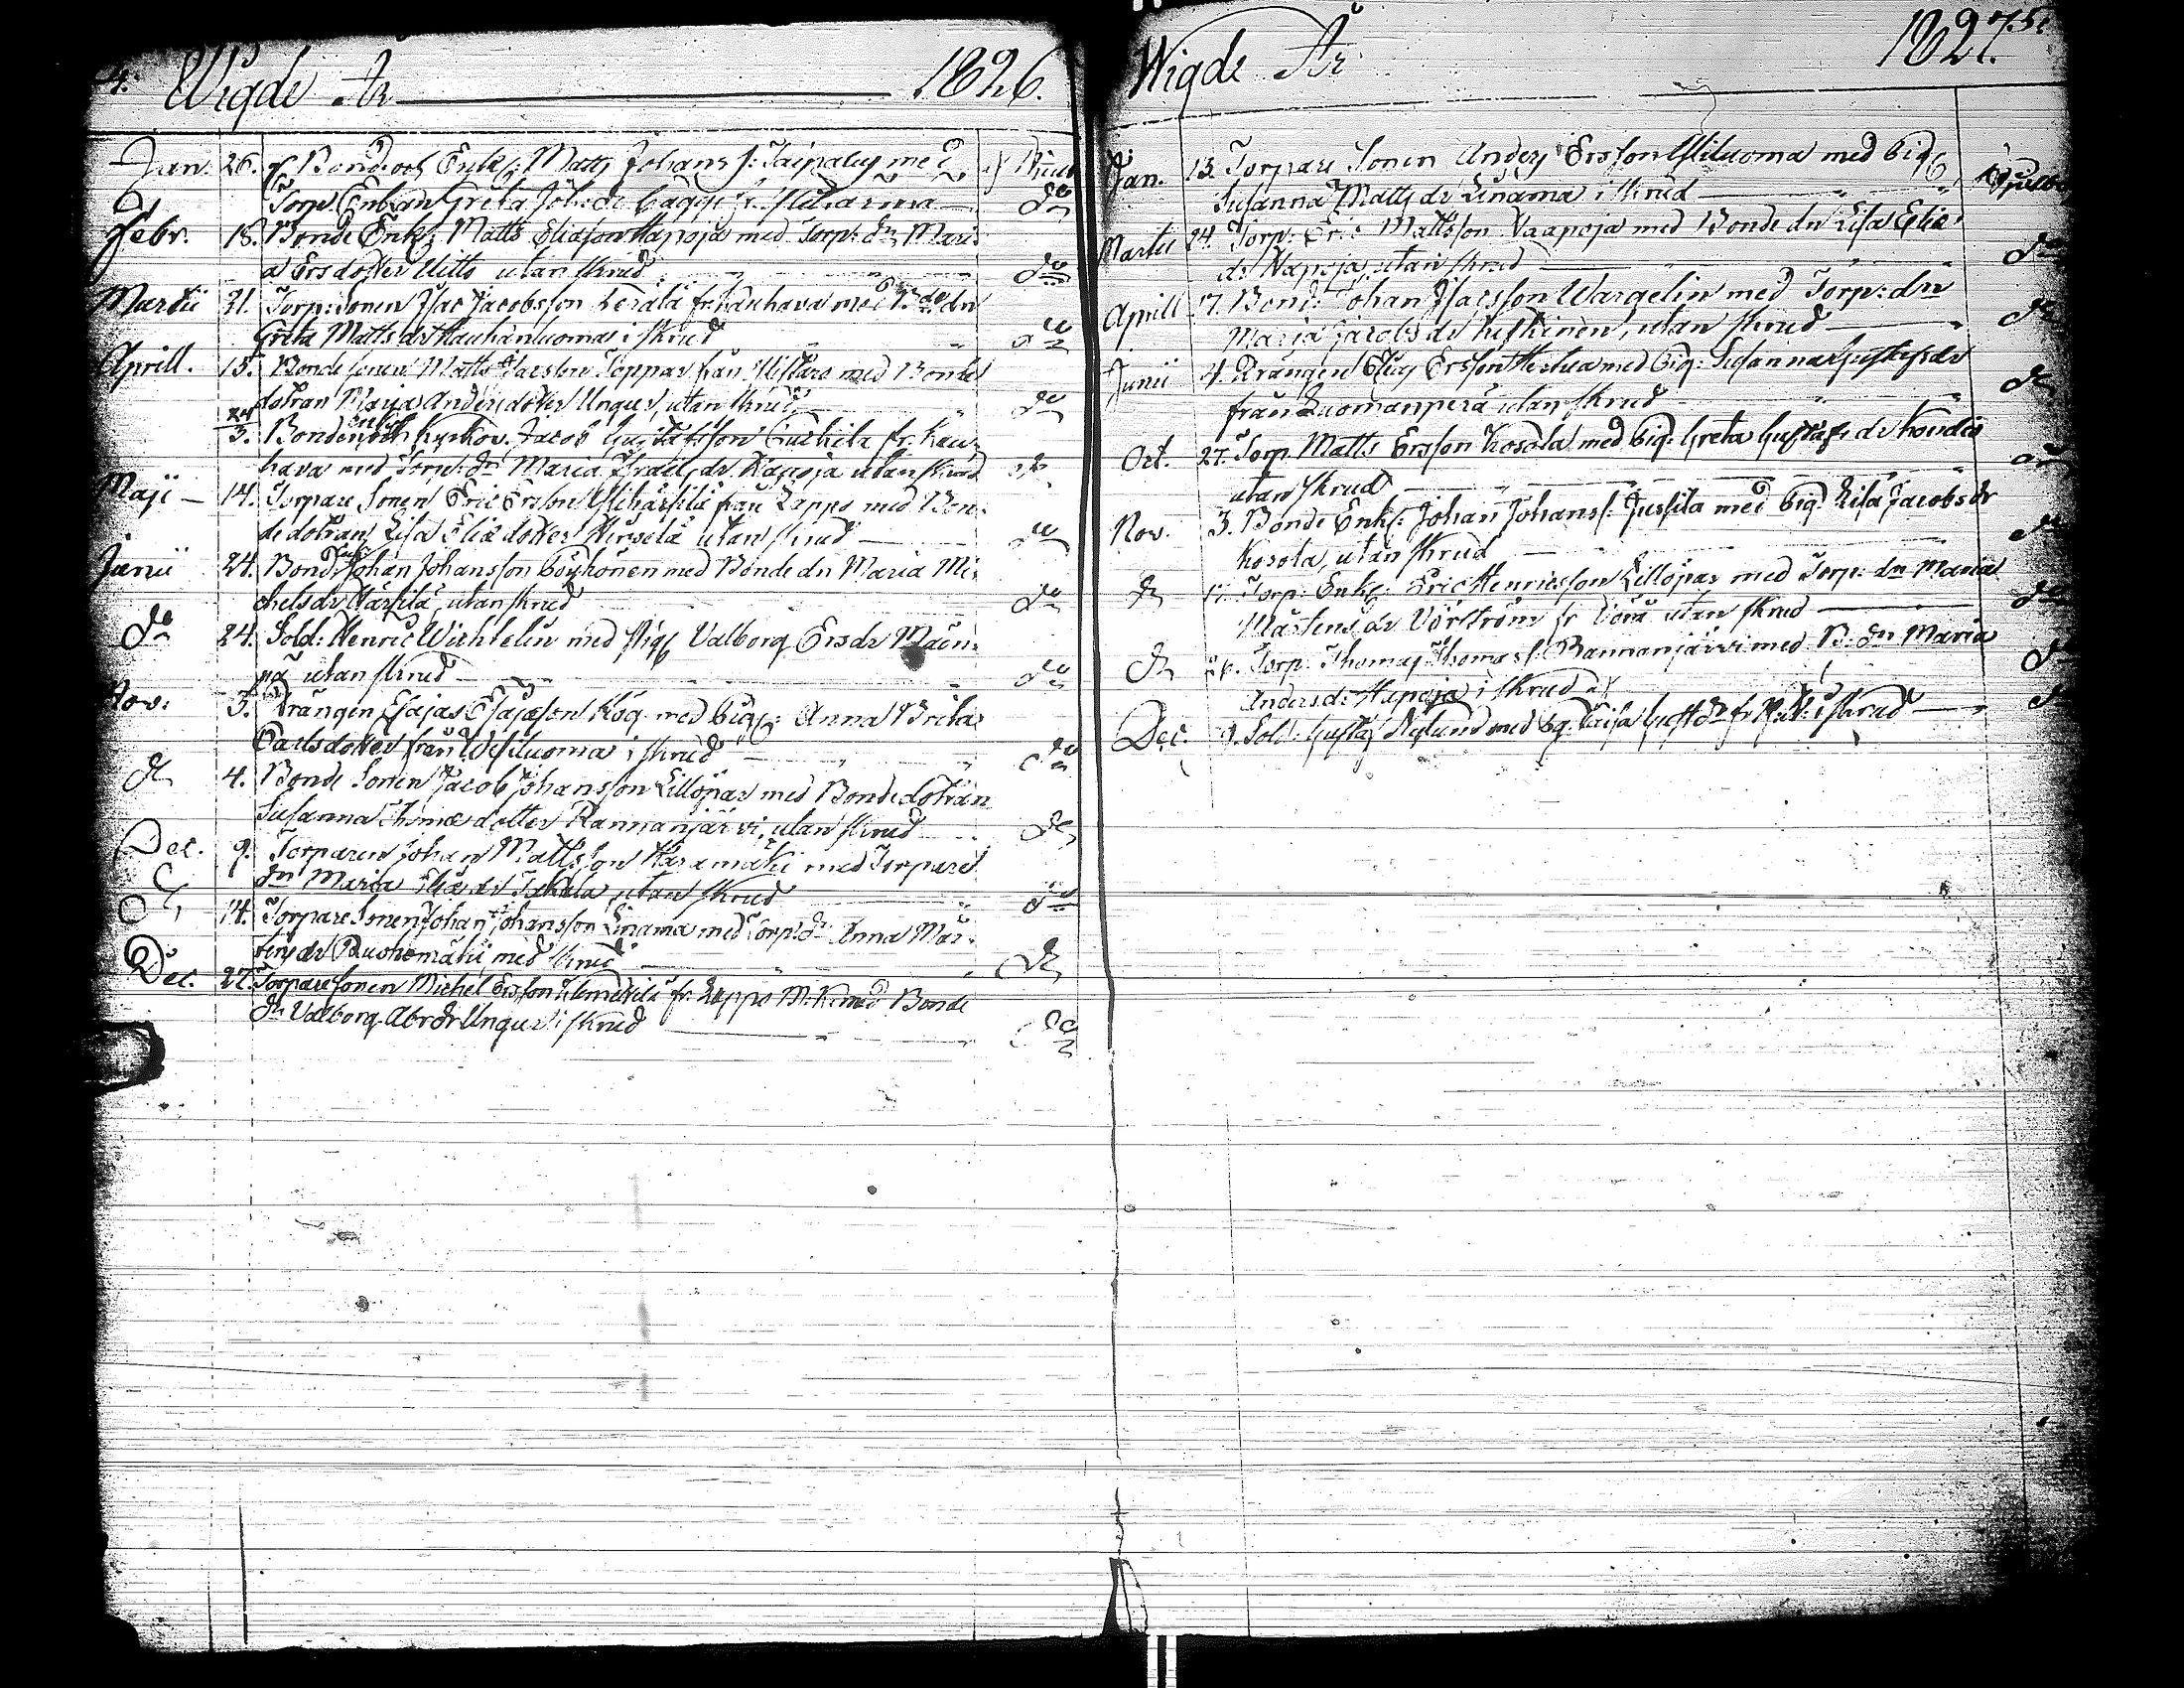 4.
Wigde År 1826.
Jan. 26. Bond. och Enkl: Matts Johans s: Taipalus med
Torp. Enkan Greta Joh:dr Bagge fr. do
Febr. 18. Bonde Enkl: Matts Eliasson Hapoja med Torp: dn Mari-
a Ersdotter Uitto utan skrud do
Martii 21. Torp: Sonen Isac Jacobsson Kerälä fr. Kauhava med B:de dn
Greta Matts dr Kauhanluoma i skrud do
Aprill. 15. Bonde sonen Matts Isacsson Toppar från Ylistaro med Bonde
dotran Maja Anders dotter Ungur, utan skrud do
3. Bonden och Kyrkov. Jacob Gustafsson fr. Kau-
hava med Torp: dn Maria Israels dr. Kapoja utan skrud do
Maji 14. Torpare Sonen Eric Ersson från Lappo med Bon-
de dotran Lisa Eliæ dotter Hirselä utan skrud do
Junii 24. Bond. Johan Johansson Böyhönen med Bonde dn Maria Mi-
chels dr Härsilä, utan skrud do
do 24. Sold: Henric Wichtelin med Pig: Valborg Ersdr Mäen-
pä utan skrud do
Nov. 5. Drängen Esajas Esajæson Kog med Pig: Anna Brita
Carlsdotter från i skrud do
do 4. Bonde Sonen Jacob Johansson Lillöjpar med Bondedotran
Susanna Thomæ dotter Rannanjärvi, utan skrud do
Dec. 9. Torparen Johan Mattsson Haramäki med Torpare
dn Maria Eliæ dr Takala utan skrud do
do 14. Torpare Sonen Johan Johansson Linama med Torp: dn Anna Mår-
tens dr Ruohomäki med skrud do
Dec. 27. Torpare sonen Michel Ersson fr. Lappo M.K. med Bonde
dn Valborg Abr dr Ungur i skrud do
Wigde År 1827. 5.
Jan. 13. Torpare Sonen Anders Ersson Yliluoma med Pig.
Susanna Matts dr Linama i skrud
Martii 24. Torp: Eric Mattsson Haapoja med Bonde dn Lisa Eliæ
dr Hapoja utan skrud do
Aprill 17. Bond: Johan Isacsson Wargelin med Torp: dn
Maria Jacobs dr Keskinen, utan skrud do
Junii 4. Drängen Elias Ersson med Pig: Susanna Gustafsdr
från Luomanperä utan skrud do
Oct. 27. Torp Matts Ersson Kosola med Pig: Greta Gustafs dr
utan skrud do
Nov. 3. Bonde Enkl: Johan Johans s: Jussila med Pig: Lisa Jacobs dr
Kosola, utan skrud do
do 17. Torp. Enkl: Eric Henricsson Lillöjpar med Torp: dn Maria
Mårtens dr Vörström fr Vörå utan skrud do
do 26. Torp. Thomas Thomæ s: Rannanjärvi med B: dn Maria
Anders dr Hapoja i skrud do
Dec. 9. Sold: Gustaf Nylund med Pig. Caisa i skrud do